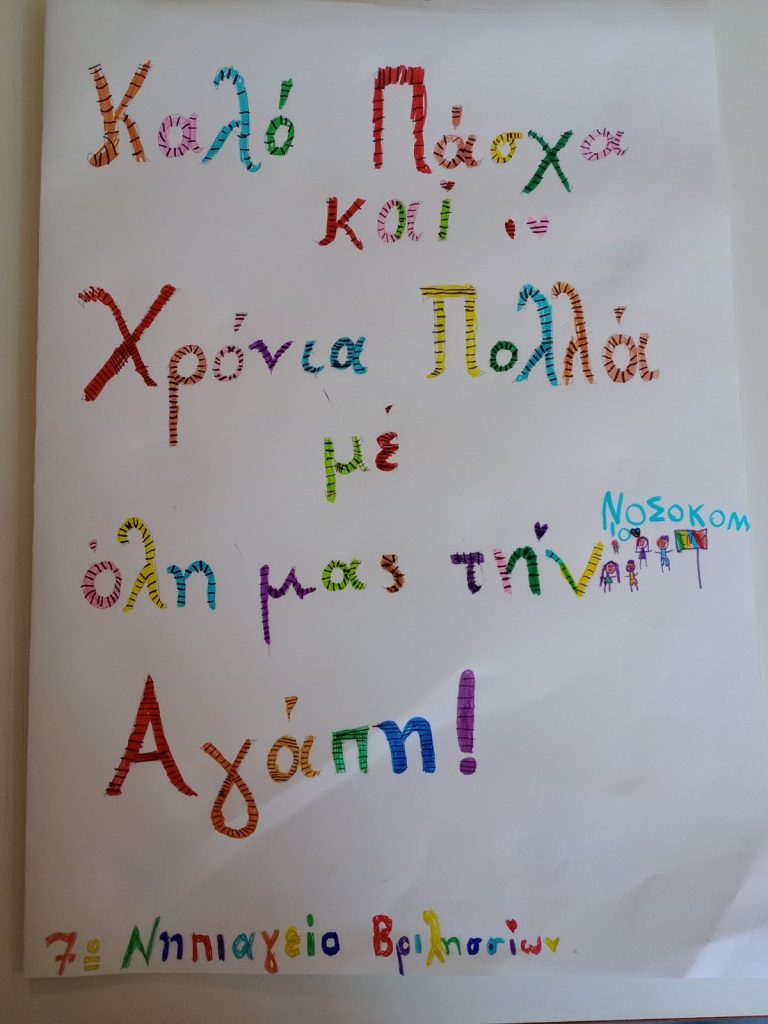 Καλό Πάσχα
καί
Χρόνια Πολλά
μέ
όλη μας τήν
ΝΟΣΟΚΟΜ
Αγάπη!
7ο Νηπιαγείο Βριλησσίων